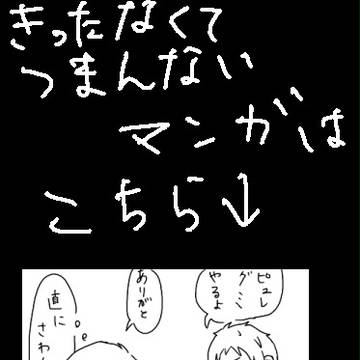 きったなくて
つまんない
マンガは
こちら↓
ピュレ
グミ
やるよ
ありがと
直に
さわ